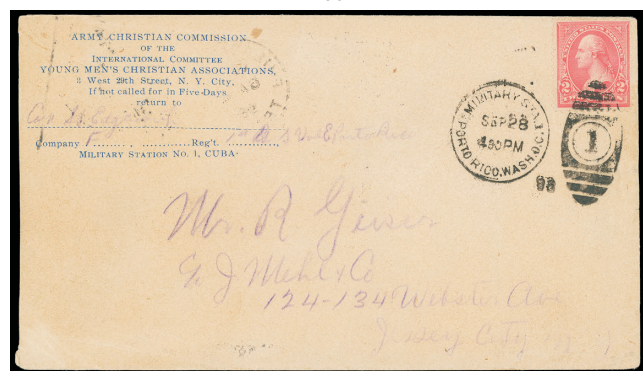 ARMY CHRISTIAN COMMISSION
OF THE
INTERNATIONAL COMMITTEE
YOUNG MEN'S CHRISTIAN ASSOCIATIONS,
3 West 29th Street, N. Y. City.
If not called for in Five Days
return to
Company F Reg't.
MILITARY STATION NO. 1, CUBA.
MILITARY STA. 1
SEP 28
4 30 PM
PORTO RICO, WASH. D.C.
98
1
2 2
Mr. R Geiser
c/o J Mehl & Co
124-134 Webster Ave
Jersey City